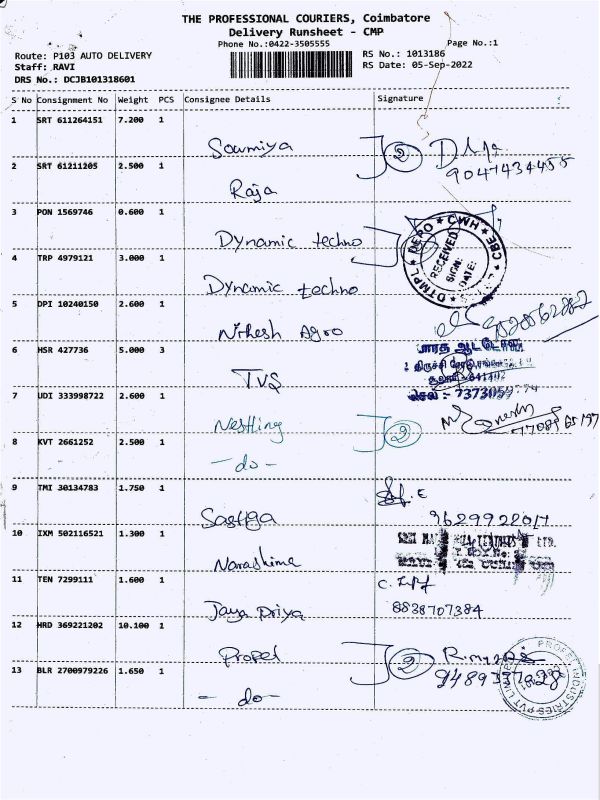 THE PROFESSIONAL COURIERS, Coimbatore
Delivery Runsheet - CMP
Phone No.:0422-3505555
Page No.:1
Route: P103 AUTO DELIVERY
RS No.: 1013186
Staff: RAVI
RS Date: 05-Sep-2022
DRS No.: DCJB101318601
S No Consignment No Weight PCS Consignee Details Signature
1 SRT 611264151 7.200 1
Soumiya 2
9047434455
2 SRT 61211205 2.500 1
Raja
3 PON 1569746 0.600 1
Dynamic techno
DTMPL * DEPO * CWH * CBE *
RECEIVED
SIGN:
DATE:
4 TRP 4979121 3.000 1
Dynamic techno
5 DPI 10240150 2.600 1
Nithesh Agro
6 HSR 427736 5.000 3
TVS
7 UDI 333998722 2.600 1
Nestling 2
8 KVT 2661252 2.500 1
- do -
9 TMI 30134783 1.750 1
Sastiga
9629922017
10 IXM 502116521 1.300 1
Narashima
11 TEN 7299111 1.600 1
Jaya Priya
8838707384
12 HRD 369221202 10.100 1
Propel 2
13 BLR 2700979226 1.650 1
- do -
9489337028